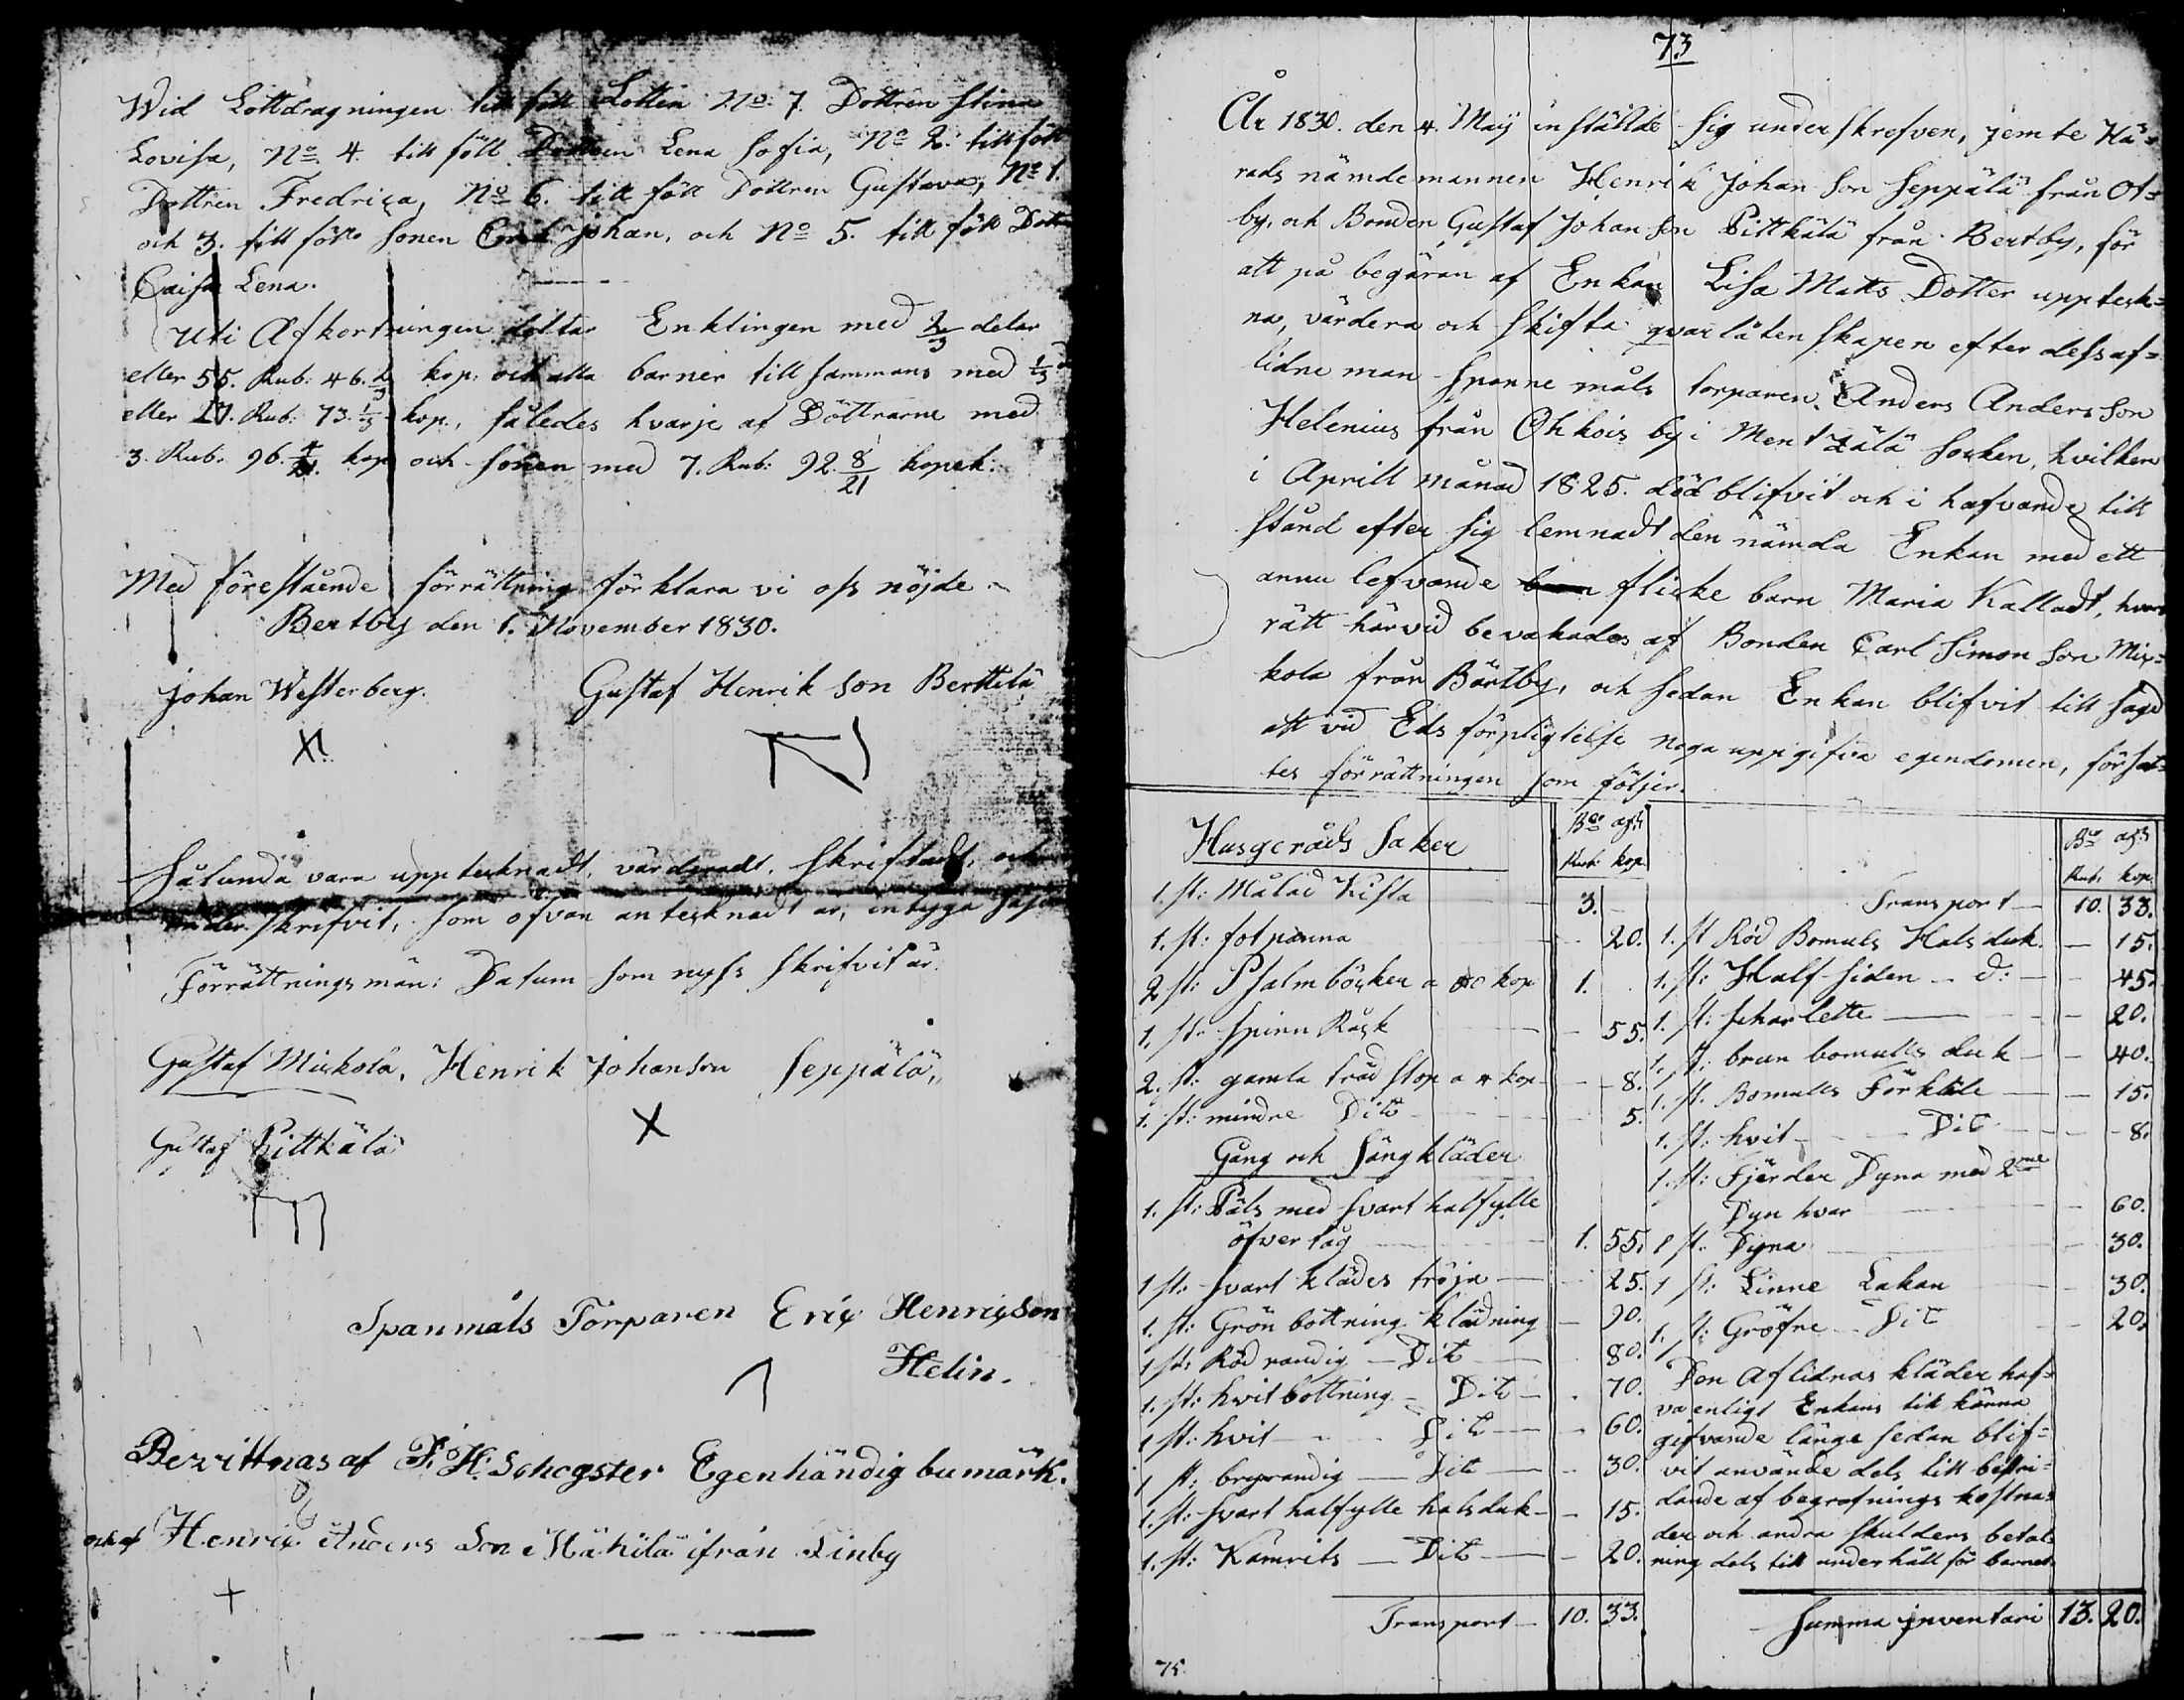 Wid Lottdragningen till föll Lotten No: 7. Dottren Stina
Lovisa, No: 4. till föll Dottren Lena Sofia, No 2. till föll
Dottren Fredrica, No 6. till föll Dottren Gustava, No 1.
och 3. till föll Sonen Erik Johan, och No 5. till föll Dott
Caisa Lena.
Uti Afkortningen deltar Enklingen med 2/3 delar
eller 55. Rub: 46. 2/3 kop: och alla barnen till sammans med 1/3
eller 27. Rub: 73. 1/3 kop., således hvarje af Döttrarne med
3. Rub. 96. 4/21. kop och Sonen med 7. Rub: 92. 8/21 kopek.
Med förestående förrättning förklara vi oss nöjde
Bertby den 1. November 1830.
Johan Westerberg. Gustaf Henrik Son Berttilä
Sålunda vara upptecknadt, värderadt, skriftadt, och
under skrifvit, som ofvan antecknadt är, intyga
Förrättningsmän: Datum som nyss skrifvit är.
Gustaf Mickola, Henrik Johanson Seppälä,
X
Gustaf Pittkälä
Spanmåls Torparen Eric Henricson
Helin.
Bevittnas af F. H. Schogster Egenhändig bumärk.
och af Henric Anders Son Mähilä ifrån Linby
+
73
År 1830. den 4. Maij instälde sig underskrefven, jemte Hä=
rads nämdemannen Henrik Johan Son Seppälä från Ot=
by, och Bonden Gustaf Johan Son Pittkälä från Bertby, för
att på begäran af Enkan Lisa Matts Dotter uppteck=
na, värdera och skifta qvarlåtenskapen efter dess af=
lidne man Spanne måls torparen Anders Anders Son
Helenius från Ohkois by i Mentzälä Socken, hvilken
i Aprill månad 1825. död blifvit och i hafvande till
stånd efter sig lemnadt den nämda Enkan med ett
ännu lefvande flicke barn Maria Kalladt, hvars
rätt härvid bevakades af Bonden Carl Simon Son Mix=
kola från Bärtby, och sedan Enkan blifvit till sagd
att vid Eds förpligtelse noga uppgifva egendomen, förfat=
tes förrättningen som följer.
Husgeråds Saker Bco ass
Rub: kop.
1. st: Målad Kista 3.
1. st: fotpanna 20.
2 st: Psalmböcker a kop 1.
1. st: Spinn Råck 55.
2. st: gamla träd stop a 4 kop 8.
1. st: mindre Dito 5.
Gång och Sängkläder
1. st: Päls med svart halfsylle
öfvertåg 1. 55.
1 st: svart klädes tröja 25.
1. st: Grön bottning klädning 90.
1 st: Röd randig Dito 80.
1. st: hvit bottning Dito 70.
1 st: hvit Dito 60.
1 st: bregrandig Dito 30.
1. st: svart halfsylle halsduk 15.
1. st: Kamrits Dito 20.
Transport 10. 33.
75.
Bco ass
Rub: kop
Transport 10. 33.
1. st Röd Bomuls Halsduk 15.
1. st: Half siden d: 45.
1. st: Scharlette 20.
1. st: brun bomulls duk 40.
1. st. Bomulls Förkläde 15.
1. st: hvit Dito 8.
1. st: Fjärder Dyna med 2ne
Dyn hvar 60.
1 st: Dyna 30.
1 st: Linne Lakan 30.
1. st: Gröfre Dito 20.
Den Aflidnas kläder haf=
va enligt Enkans till känna
gifvande länge sedan blif=
vit använde dels till bestri=
dande af begrafnings kostna
der och andra skulders betal
ning dels till underhåll för barnet
Summa inventari 13. 20.